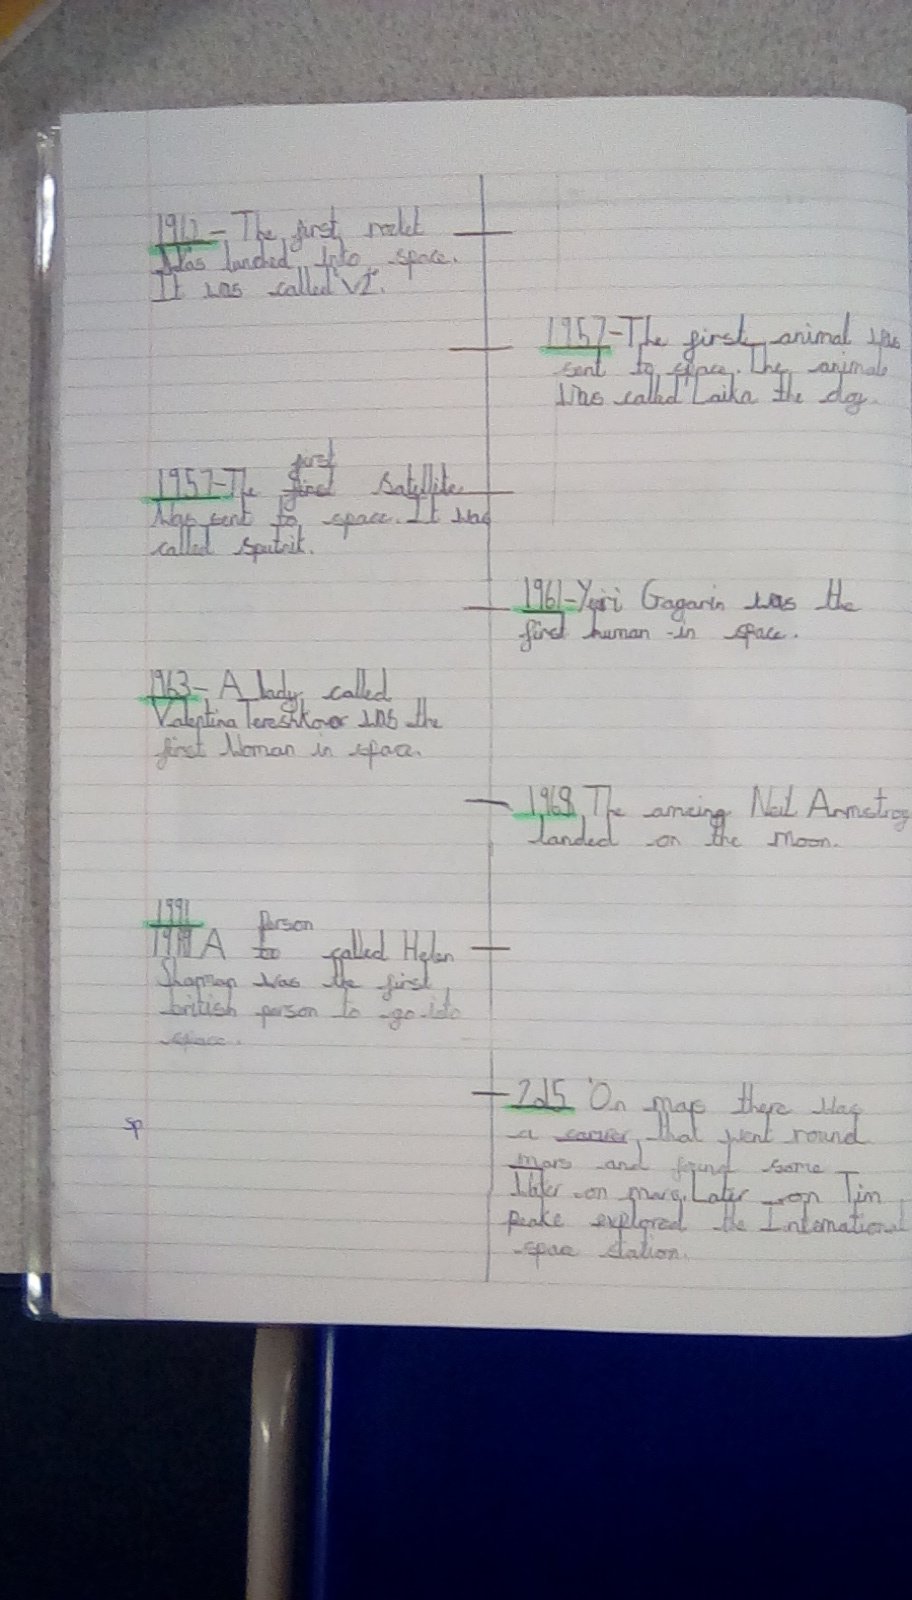 The first rocket
Was lanched into space.
It was called "V2".
1957-The first animal was
sent to space. The animal
Was called Laika the dog.
first
1957-The first satellite
Was sent to space. It was
called sputnik.
1961-Yuri Gagarin was the
first human in space.
1963- A lady called
Valentina Tereshkover was the
first Woman in space.
The amazing Neil Armstrog
landed on the moon.
1991 person
A to called Helen
Sharman was the first
british person to go into
space.
On mars there was
sp
a that went round
mars and found some
Water on mars. Later on Tim
peake explored the International
space station.